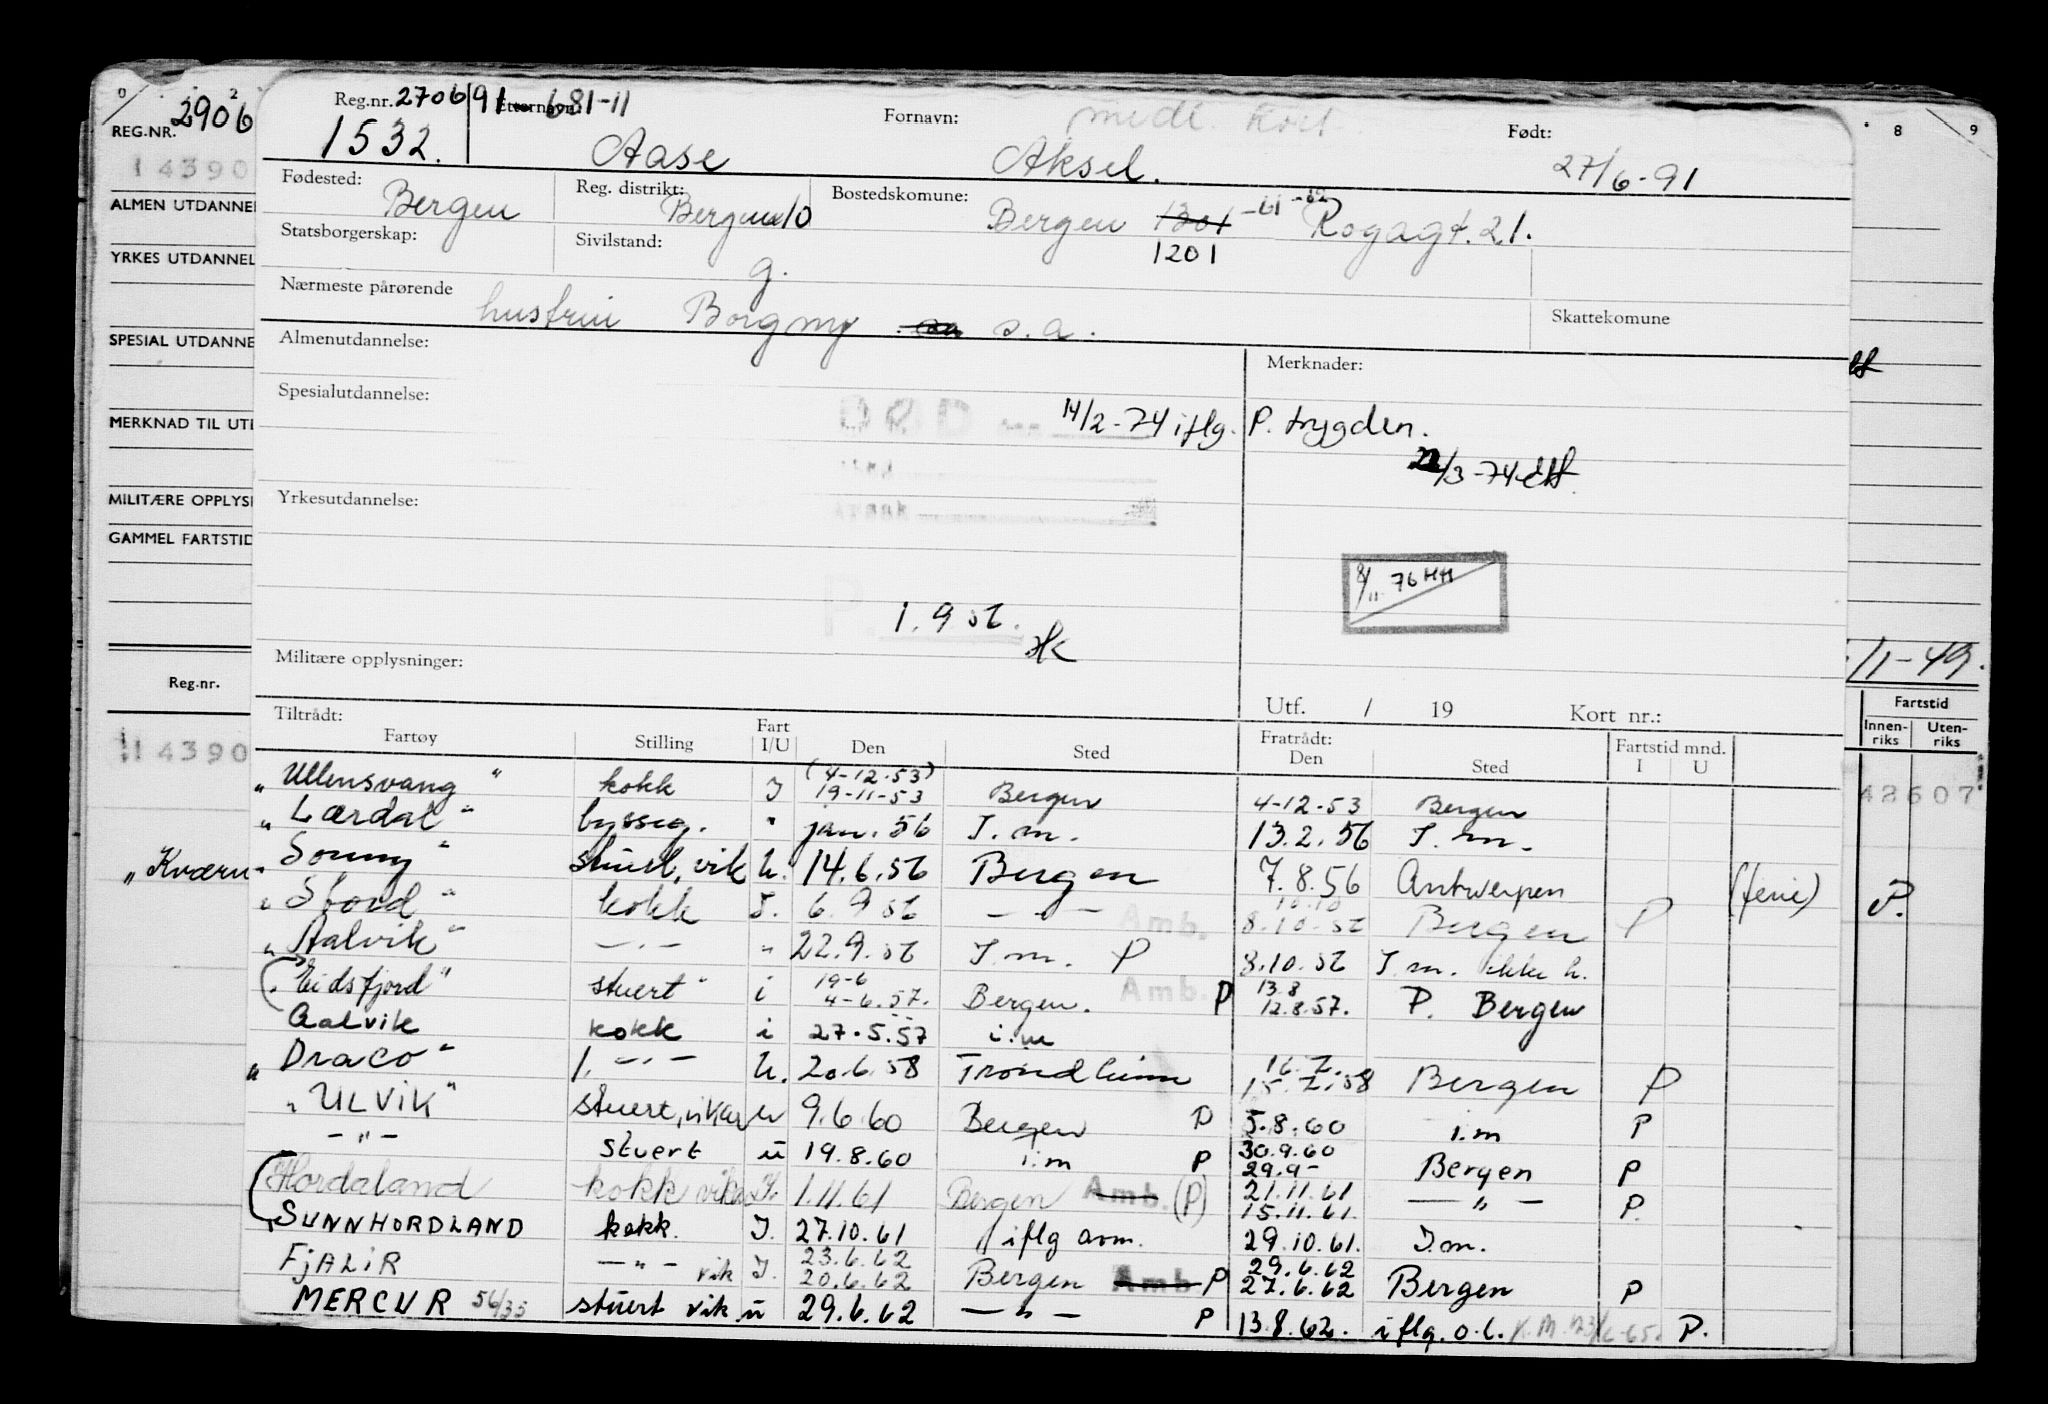 0 2 8 9
2906
REG.NR.
14390
ALMEN UTDANNE
YRKES UTDANNEL
SPESIAL UTDANNE
MERKNAD TIL UTE
MILITÆRE OPPLYSN
GAMMEL FARTSTID
Reg.nr.
14390
"Kværn
Reg.nr. 270691 681-11 Etternavn: Fornavn: medl. kort Født:
1532. Aase Aksel. 27/6-91
Fødested: Bergen Reg. distrikt: Bergen 10 Bostedskomune: Bergen 1301 -61 -62 Rogagt. 21.
1201
Statsborgerskap: Sivilstand: g.
Nærmeste pårørende hustru Borgny s.a. Skattekomune
Almenutdannelse: Merknader:
Spesialutdannelse: DØD 14/2-74 iflg. P. trygden.
22/3-74
Yrkesutdannelse:
8/11 76 HH
P. 1.9 56.
Militære opplysninger:
/11-49.
Utf. / 19 Kort nr.:
Tiltrådt: Fratrådt: Fartstid mnd.
Fartøy Stilling Fart I/U Den Sted Den Sted I U
Fartstid
Innenriks Utenriks
(4-12-53)
"Ullensvang" kokk I 19-11-53 Bergen 4-12-53 Bergen
48607
"Lærdal" bysseg. " jan. 56 I.m. 13.2.56 I.m.
"Sonny" stuert, vik U. 14.6.56 Bergen 7.8.56 Antwerpen (ferie) P.
10.10
"Stord" kokk I. 6.9 56 —"— Amb. 8.10.56 Bergen P
"Aalvik" —"— " 22.9.56 I.m. P 8.10.56 I.m. ikke h.
19-6 13.8
"Eidsfjord" stuert i 4-6.57. Bergen. Amb. P 12.8.57. P. Bergen
Aalvik kokk i 27.5.57 i.m
16.7.
"Draco" 1. —"— U. 20.6.58 Trondheim 15.7.58 Bergen P
"ULVIK" stuert, vikar u 9.6.60 Bergen P 5.8.60 i.m P
30.9.60
—"— stuert u 19.8.60 i.m P 29.9- Bergen P
21.11.61
Hordaland kokk vikar I. 1.11.61 Bergen Amb. (P) 15.11.61. —"— P.
SUNNHORDLAND kokk. I. 27.10.61 iflg avm. 29.10.61. I.m.
23.6.62 29.6.62
FJALIR —"— vik I. 20.6.62 Bergen Amb P 27.6.62 Bergen P
MERCUR 56/35 stuert vik u 29.6.62 —"— P 13.8.62. iflg. o.l. P.